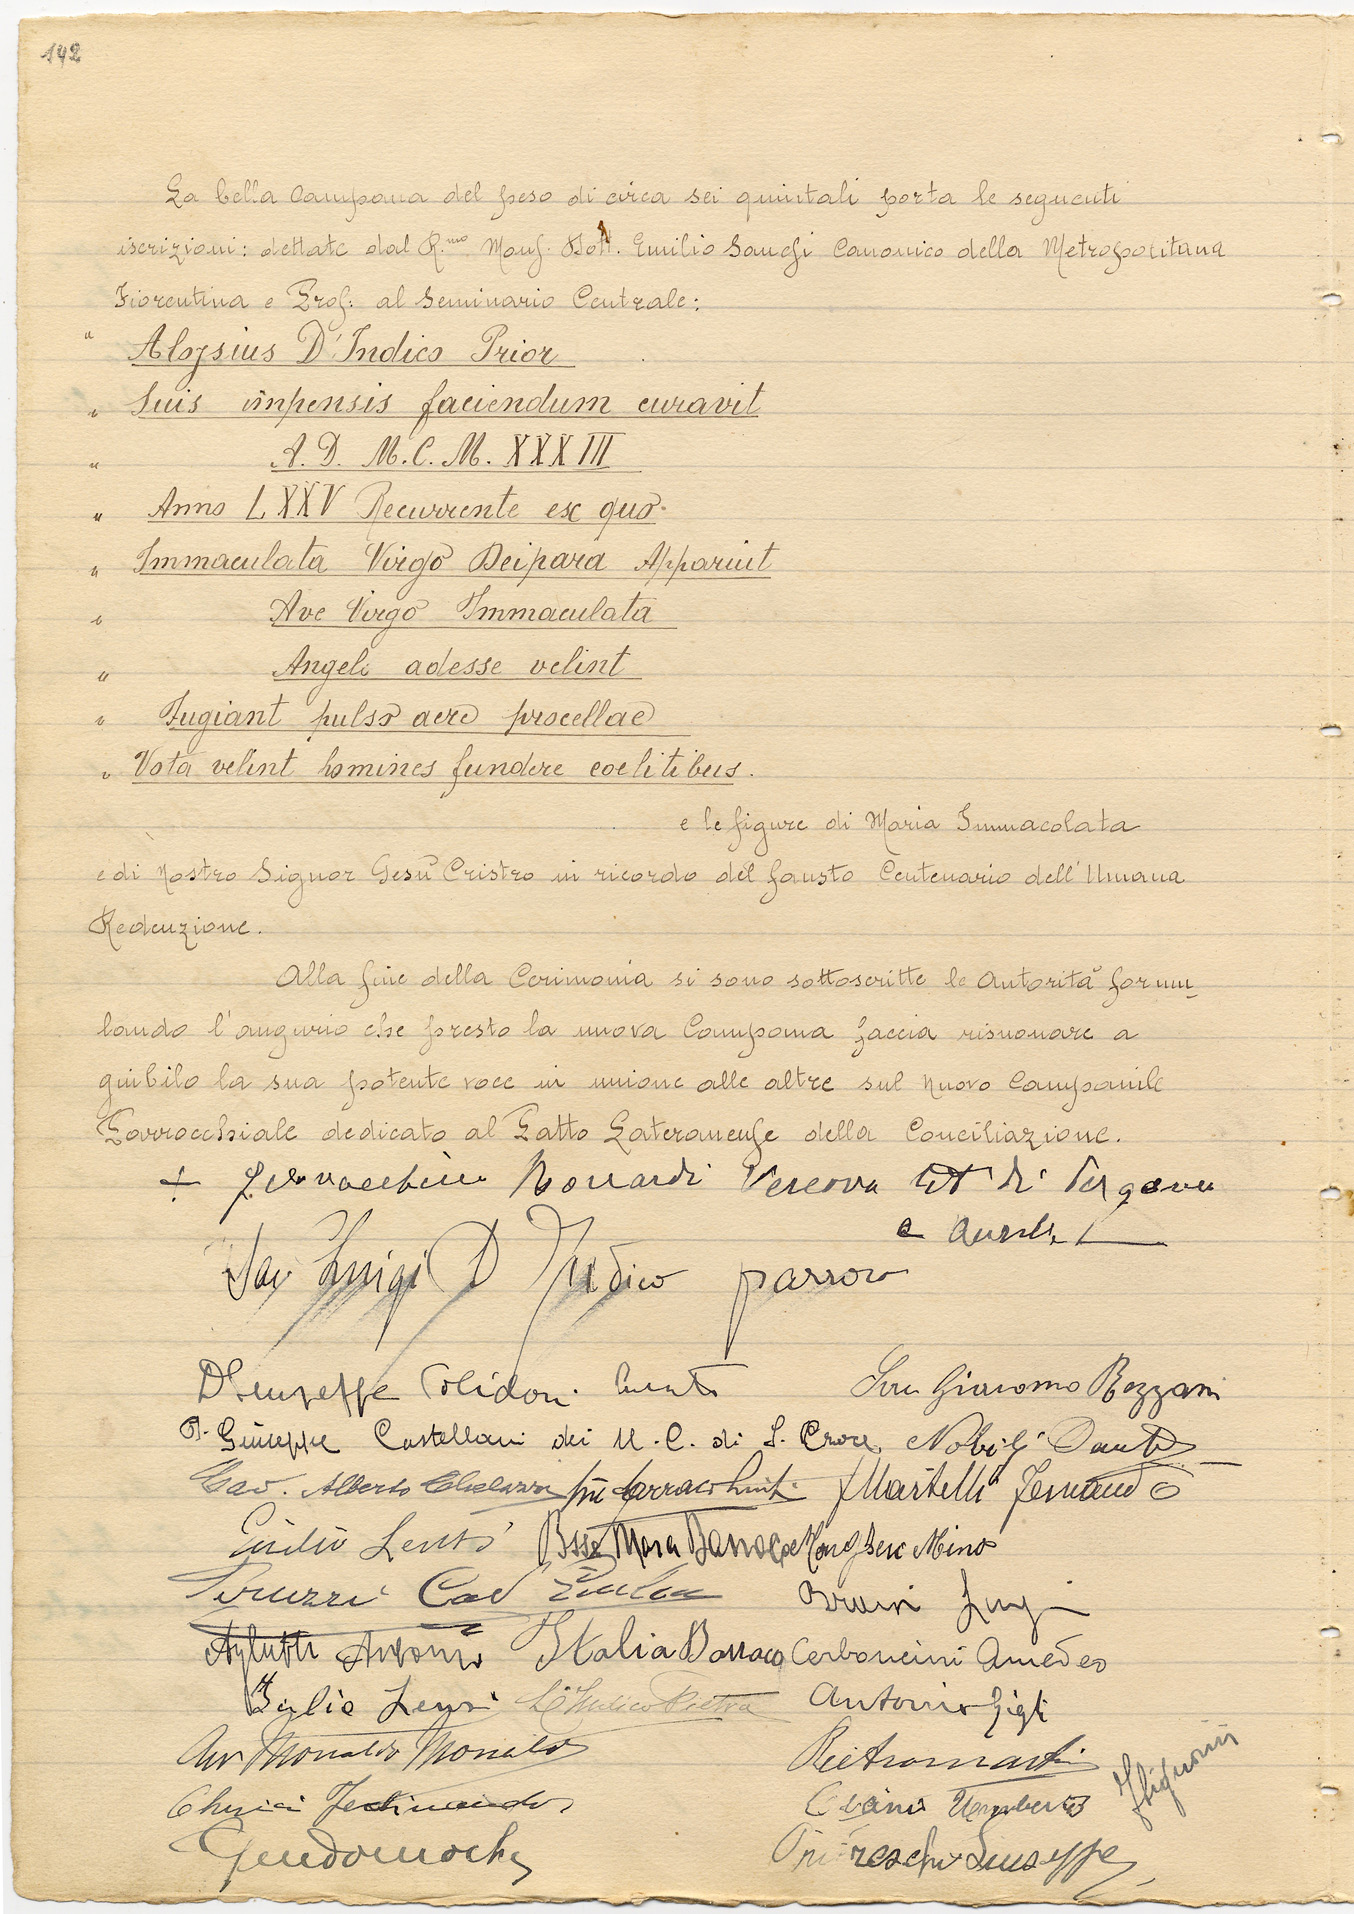 142
La bella Campana del peso di circa sei quintali porta le seguenti
iscrizioni: dettate dal R.mo Monf. Dott. Emilio Sanesi Canonico della Metropolitana
Fiorentina e Prof: al Seminario Centrale:
" Aloysius D'Indico Prior
" Suis impensis faciendum curavit
" A. D. M.C.M. XXXIII
" Anno LXXV Recurrente ex quo
" Immaculata Virgo Deipara Apparuit
" Ave Virgo Immaculata
" Angeli adesse velint
" Fugiant pulso aere procellae
" Vota velint homines fundere coelitibus.
e le figure di Maria Immacolata
e di Nostro Signor Gesù Cristro in ricordo del fausto Centenario dell'Umana
Redenzione.
Alla fine della Cerimonia si sono sottoscritte le Autorità formu-
lando l'augurio che presto la nuova Campana faccia risuonare a
giubilo la sua potente voce in unione alle altre sul nuovo Campanile
Parrocchiale dedicato al Patto Lateranense della Conciliazione.
+ Bonardi Vescovo Tit di
e
Sac Luigi D'Indico parroco
D Giuseppe Giacomo Bozzani
P. Giuseppe Castellani dei M. C. di S. Croce Nobili Dante
Cav. Alberto Martelli Fernando
Giulio Lensi Mara Barraco Mino
Peruzzi Cav Bruni Luigi
Antonio Italia Barraco Carboncini Amedeo
Giulio Lensi D'Indico Pietra Antonio Gigli
Avv Monaldo Monaldi Pietro
Ferdinando Umberto
Giuseppe